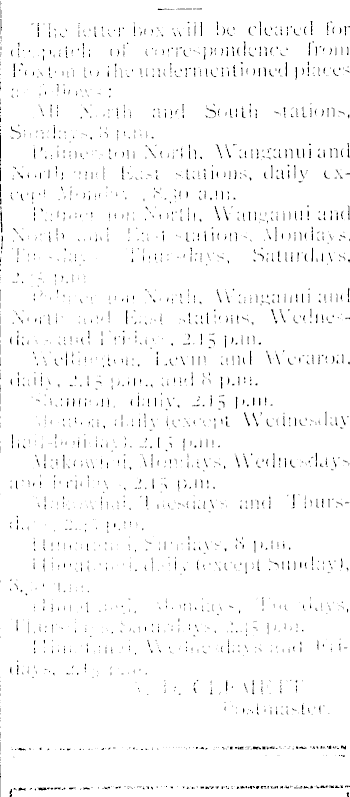 The letter box will be cleared for
despatch of correspondence from
Foxton to the undermentioned places
as follows:
All North and South stations,
Sundays, 8 p.m.
Palmerston North, Wanganui and
North and East stations, daily ex-
cept Monday, 8.30 a.m.
Palmerston North, Wanganui and
North and East stations, Mondays,
Tuesdays, Thursdays, Saturdays,
p.m.
Palmerston North, Wanganui and
North and East stations, Wednes-
days and Fridays, 2.15 p.m.
Wellington, Levin and Weraroa,
daily, 2.15 p.m., and 8 p.m.
Shannon, daily, 2.15 p.m.
Motoa, daily (except Wednesday
half-holiday), 2.15 p.m.
Mondays, Wednesdays
and Fridays, 2.15 p.m.
Tuesdays and Thurs-
days, p.m.
Himatangi, Sundays, 8 p.m.
Himatangi, daily (except Sunday),
8.30 a.m.
Himatangi, Mondays, Tuesdays,
Thursdays, Saturdays, p.m.
Himatangi, Wednesdays and Fri-
days, 2.15 p.m.
Postmaster.